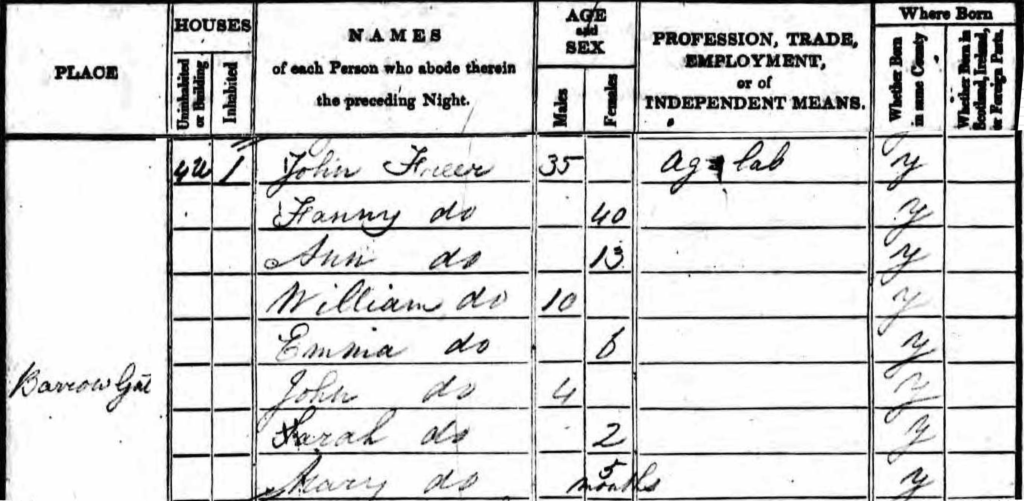 PLACE HOUSES Uninhabited or Building Inhabited NAMES of each Person who abode therein the preceding Night. AGE and SEX Males Females PROFESSION, TRADE, EMPLOYMENT, or of INDEPENDENT MEANS. Where Born Whether Born in same County Whether Born in Scotland, Ireland, or Foreign Parts.
1 John Freer 35 Ag lab y
Fanny do 40 y
Ann do 13 y
William do 10 y
Emma do 6 y
Barrow Gate John do 4 y
Sarah do 2 y
Mary do 5 months y